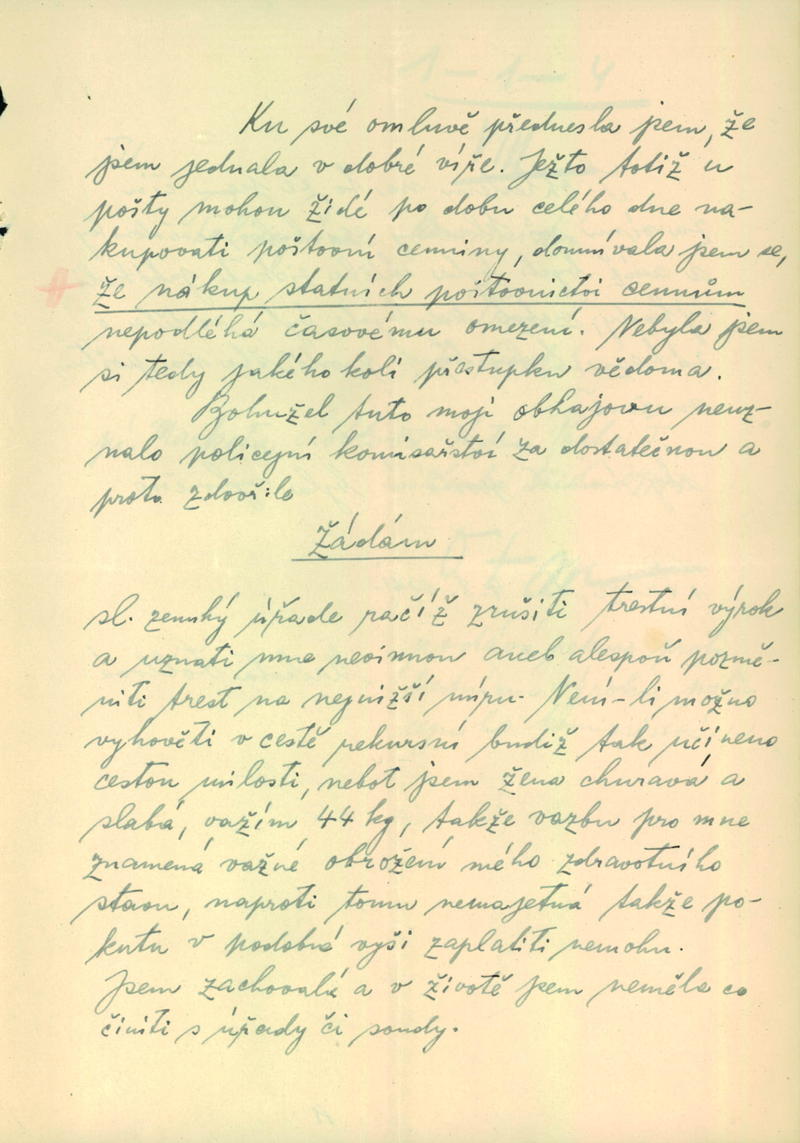 Ku své omluvě přednesla jem, že
jsem jednala v dobré víře. Ježto totiž u
pošty mohou židé po dobu celého dne na-
kupovati poštovní cenniny, domnívala jsem se,
že nákup statních poštovnictví cennům
nepodléhá časovému omezení. Nebyla jsem
si tedy jakéhokoli přestupku vědoma.
Bohužel tuto moji obhajovu neuz-
nalo policejní komisařství za dostatečnou a
proto zdvořile
Žádám
sl. zemský úřade račíž zrušiti trestní výrok
a uznati mne nevinnou aneb alespoň pozmě-
niti trest na nejnižší míru. Není-li možno
vyhověti v cestě rekursní budiž tak učíneno
cestou milosti, nebot jsem žena churavá a
slabá, važím 44 kg, takže vazbu pro mne
znamená važné obrožení mého zdravotního
stavu, naproti tomu nemajetná takže po-
kutu v podobné vyši zaplatiti nemohu.
Jsem zachovalá a v životě jsem neměla co
činiti s úřady či soudy.